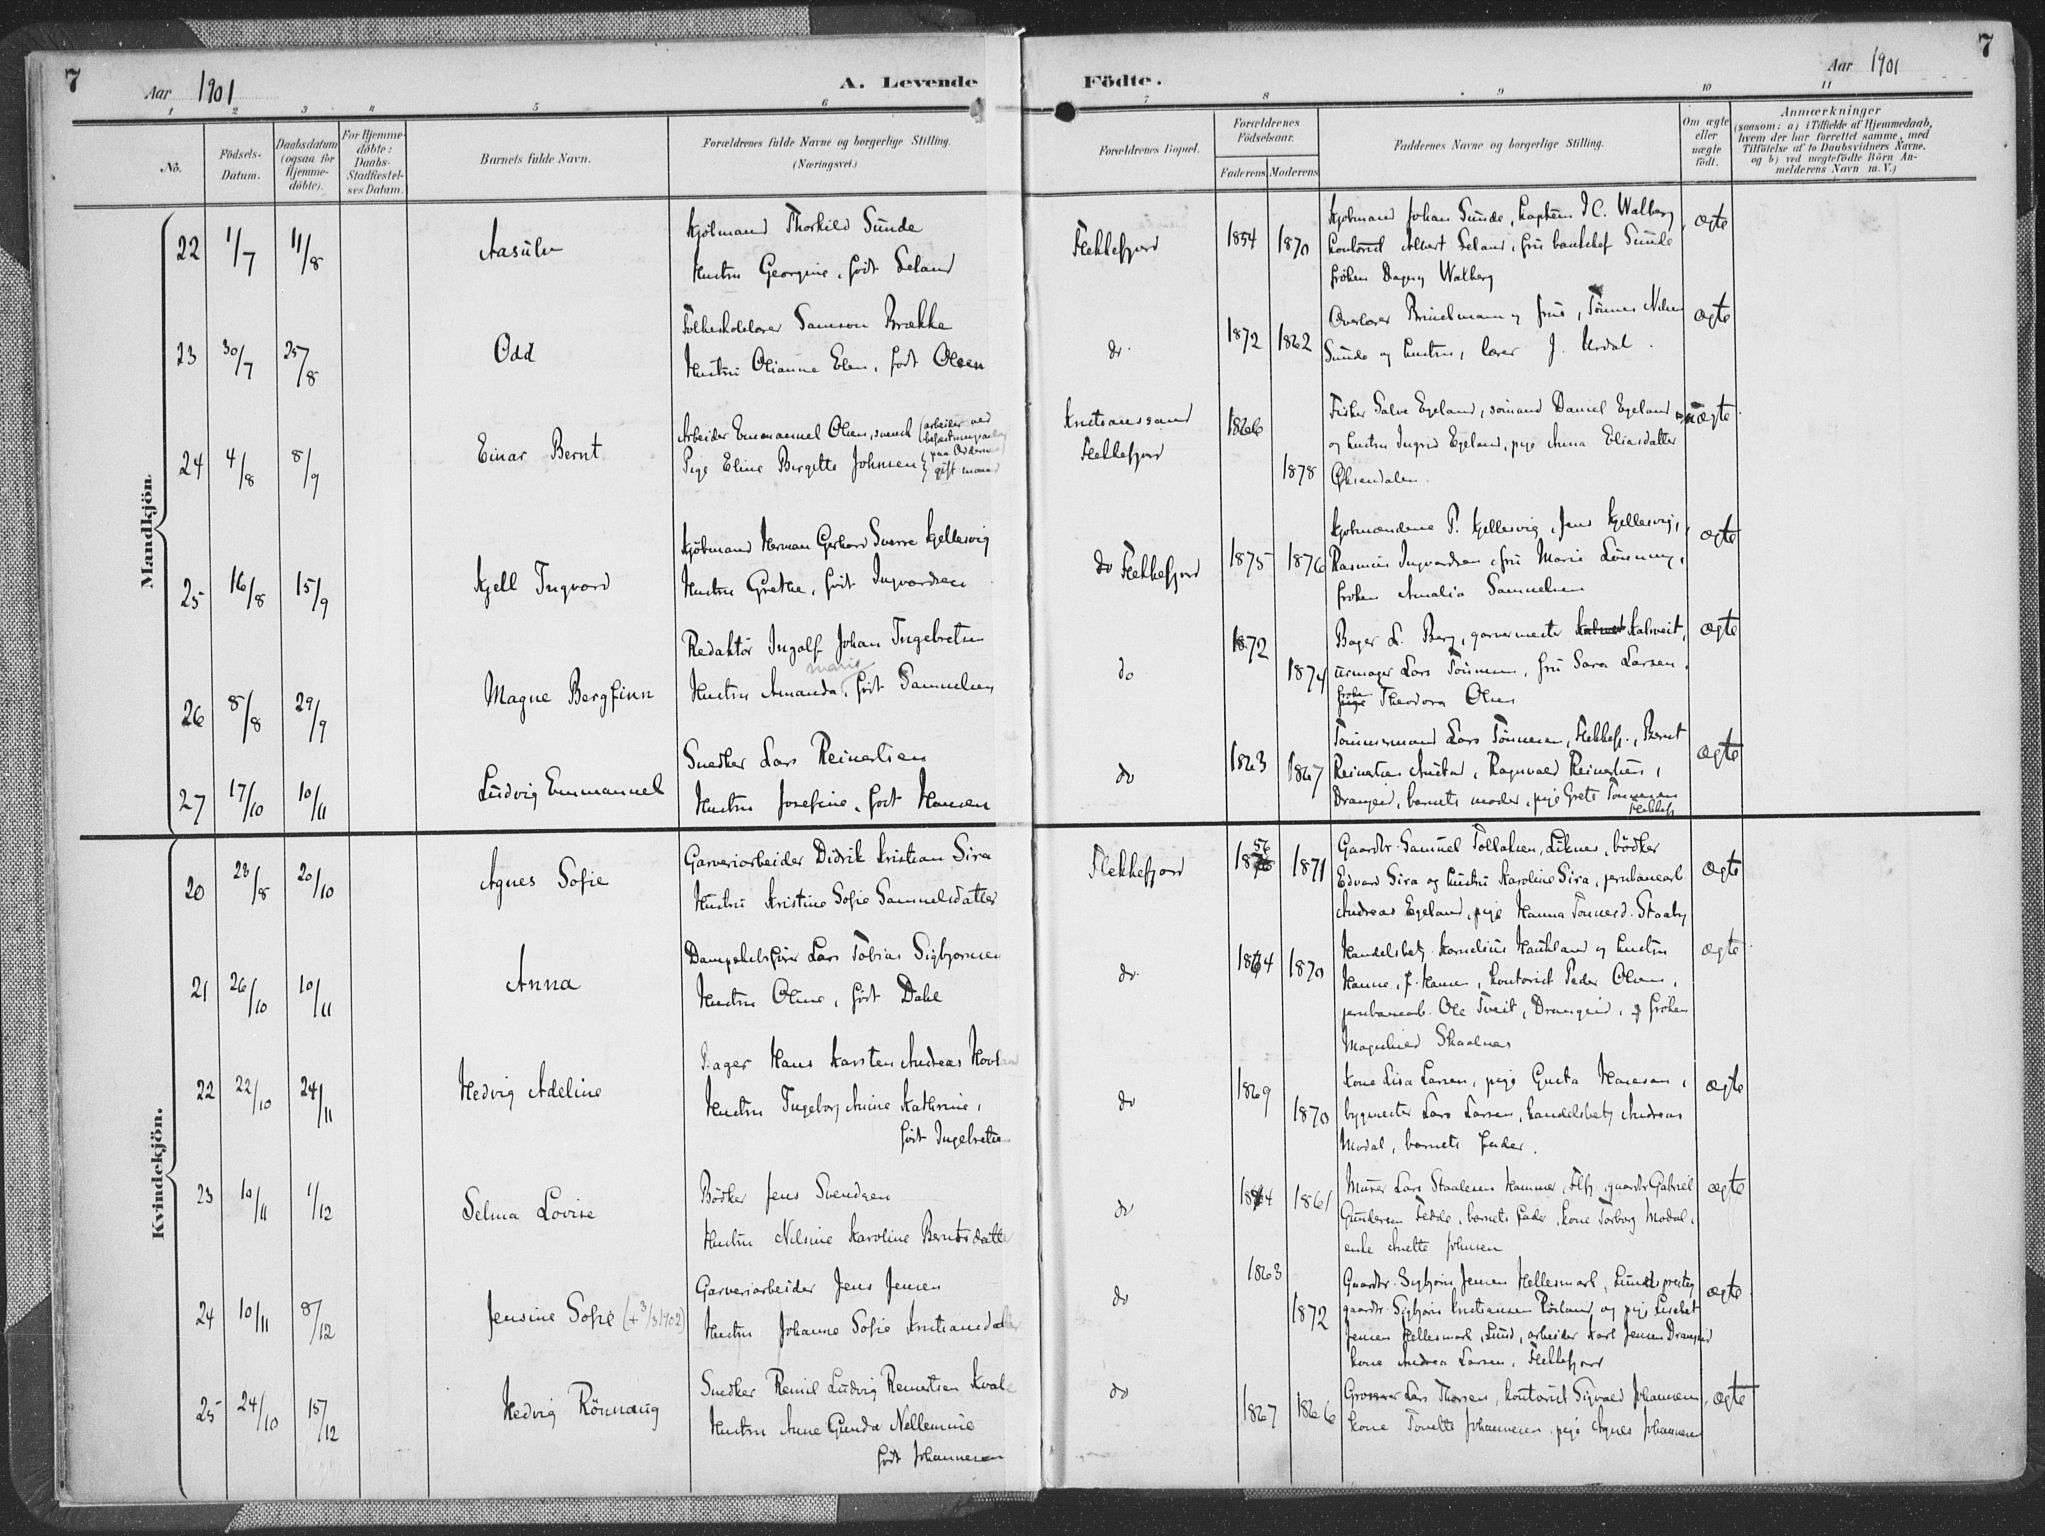 7
Aar 1901
A. Levende
Födte.
Aar 1901
7
1 2 3 4 5 6 7 8 9 10 11
No.
Födsels-Datum.
Daabsdatum (ogsaa for Hjemme-döbte).
For Hjemme-döbte: Daabs-Stadfæstel-ses Datum.
Barnets fulde Navn.
Forældrenes fulde Navne og borgerlige Stilling. (Næringsvei.)
Forældrenes Bopæl.
Forældrenes Födselsaar.
Faderens Moderens
Faddernes Navne og borgerlige Stilling.
Om ægte eller uægte födt.
Anmærkninger
(saasom: a) i Tilfælde af Hjemmedaab,
hvem der har forrettet samme, med
Tilföielse af to Daabsvidners Navne,
og b) ved uægtefödte Börn An-
melderens Navn m. V.)
Mandkjön.
22 1/7 11/8 Aasulv
Kjöbmand Thorkild Sunde
Hustru Georgine, födt Seland
Flekkefjord 1854 1870
Kjøbmand Johan Sunde, kaptein I C. Walberg
kontorist Albert Seland, fru bankchef Sunde
frøken Dagny Walberg
ægte
23 30/7 25/8 Odd
Folkeskolelærer Samson Brække
Hustru Olianne Elen, født Olsen
do. 1872 1862
Overlærer Brinchmann og frue, Tönnes Nilsen
Sunde og hustru, lærer J. Urdal.
ægte
24 4/8 8/9 Einar Bernt
Arbeider Emmanuel Olsen, svensk (arbeider ved
befæstningsanlæg
paa Odderøen)
gift mand
Pige Eline Birgitte Johnsen
Kristianssand
Flekkefjord
1866 1878
Fisker Salve Egeland, sömand Daniel Egeland
og hustru Ingrid Egeland, pige Anna Eliasdatter
Øksendalen.
uægte
25 16/8 15/9 Kjell Ingvard
Kjöbmand Herman Gerhard Sverre Kjellesvig
Hustru Grethe, födt Ingvardsen
do Flekkefjord 1875 1876
Kjøbmændene P. Kjellesvig, Jens Kjellesvig,
Rasmus Ingvardsen, fru Marie Lönning,
frøken Amalia Samuelsen
ægte
26 8/8 29/9 Magne Bergfinn
Redaktör Ingolf Johan Ingebretsen
Marie
Hustru Amanda, født Samuelsen
do 1872 1874
Bager L. Berg, garvermester Kalveit,
urmager Lars Tönnesen, fru Sara Larsen.
frøken Theodora Olsen
ægte
27 17/10 10/11 Ludvig Emmanuel
Snedker Lars Reinertsen
Hustru Josefine, født Hansen
do 1863 1867
Tømmermand Lars Tönnesen, Flekkefj., Bernt
Reinertsen, Ragnvald Reinertsen,
Drangeid, barnets moder, pige Grete Tönnesen
Flekkefj
ægte
Kvindekjön.
20 23/8 20/10 Agnes Sofie
Garveriarbeider Didrik Kristian Sira
Hustru Kristine Sofie Samuelsdatter
Flekkefjord 1856 1871
Gaardbr. Samuel Tollaksen, Liknes, bödker
Edvard Sira og hustru Karoline Sira, jernbanearb.
Andreas Egeland, pige Hanna Tönnesd. Staaby
ægte
21 26/10 10/11 Anna
Dampskibsfører Lars Tobias Sigbjørnsen
Hustru Oline, født Dahl
do. 1864 1870
Handelsbetj. Kornelius Haukland og hustru
Hanne, f. Hansen, kontorist Peder Olsen,
jernbanearb. Ole Tveit, Drangeid, frøken
Magnhild Skaalnes
ægte
22 22/10 24/11 Hedvig Adeline
Bager Hans Karsten Andreas Hovland
Hustru Ingeborg Anine Kathrine,
født Ingebretsen
do 1869 1870
Kone Lisa Larsen, pige Gusta Hansen,
bygmester Lars Larsen, handelsbetj. Andreas
Modal, barnets fader.
ægte
23 10/11 1/12 Selma Lovise
Bödker Jens Svendsen
Hustru Nilsine Karoline Berntsdatter
do 1864 1861
Murer Lars Staalesen Hammer, Flfj., gaardbr. Gabriel
Gundersen Fedde, barnets fader, kone Torborg Modal,
enke Anette Johnsen
ægte
24 10/11 8/12 Jensine Sofie (+ 3/3 1902)
Garveriarbeider Jens Jensen
Hustru Johanne Sofie Kristiansdatter
do 1863 1872
Gaardbr. Sigbjørn Jensen Hellesmark, Lunds prestegj.
gaardbr. Sigbjörn Kristiansen Rørland og pige Lisebet
Jensen Hellesmark, Lund, arbeider Karl Jensen Drangeid
kone Andrea Larsen, Flekkefjord
ægte
25 24/10 15/12 Hedvig Rönnaug
Snedker Reinil Ludvig Reinertsen Kvale
Hustru Anne Gunda Nellemine
født Johannesen
do 1867 1866
Grosserer Lars Thorsen, kontorist Sigvald Johannesen,
kone Tonette Johannesen, pige Agnes Johannesen
ægte